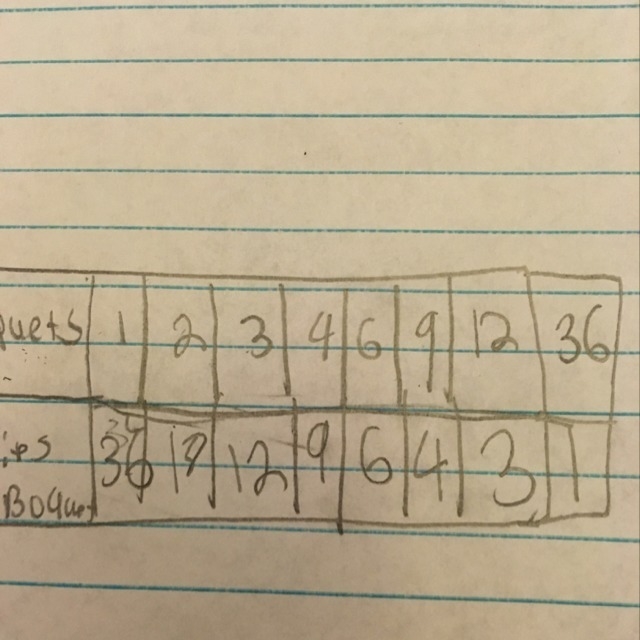 quets 1 2 3 4 6 9 12 36
ies 36 18 12 9 6 4 3 1
Boque